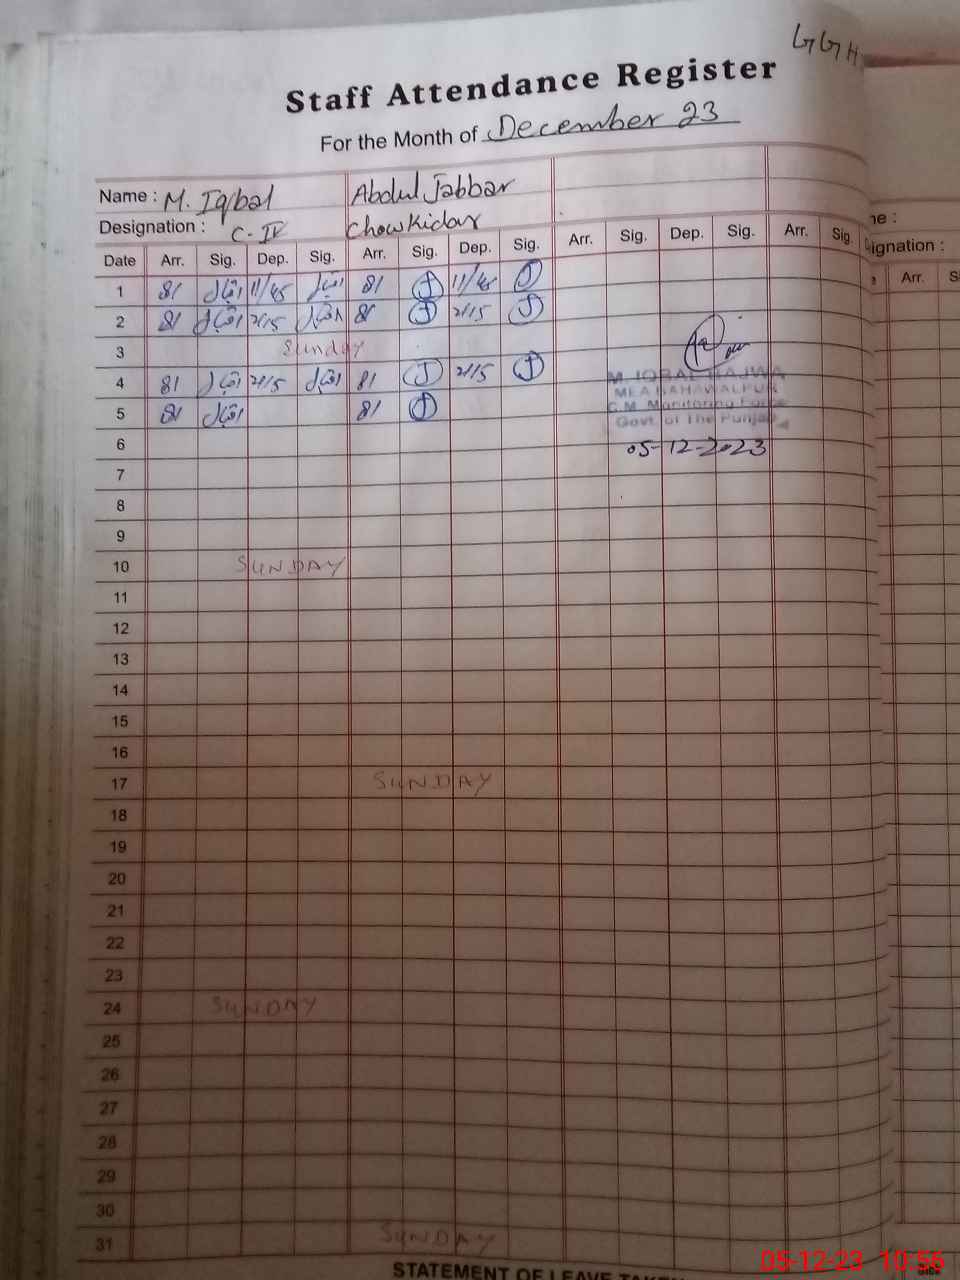 GGH
Staff Attendance Register
For the Month of December 23
Name : M. Iqbal Abdul Jabbar
Designation : C-IV Chowkidar
Date Arr. Sig. Dep. Sig. Arr. Sig. Dep. Sig. Arr. Sig. Dep. Sig. Arr. Sig.
1 8/ اقبال 11/45 اقبال 8/ J 11/45 J
2 8/ اقبال 2/15 اقبال 8/ J 2/15 J
3 Sunday
4 8/ اقبال 2/15 اقبال 8/ J 2/15 J
5 8/ اقبال 8/ J
M. IQBAL BAJWA
MEA BAHAWALPUR
C.M. Monitoring Force
Govt. of The Punjab
6 05-12-2023
7
8
9
10 SUNDAY
11
12
13
14
15
16
17 SUNDAY
18
19
20
21
22
23
24 SUNDAY
25
26
27
28
29
30
31 SUNDAY
STATEMENT OF LEAVE TAKEN
ne :
signation :
Arr.
05-12-23 10:56